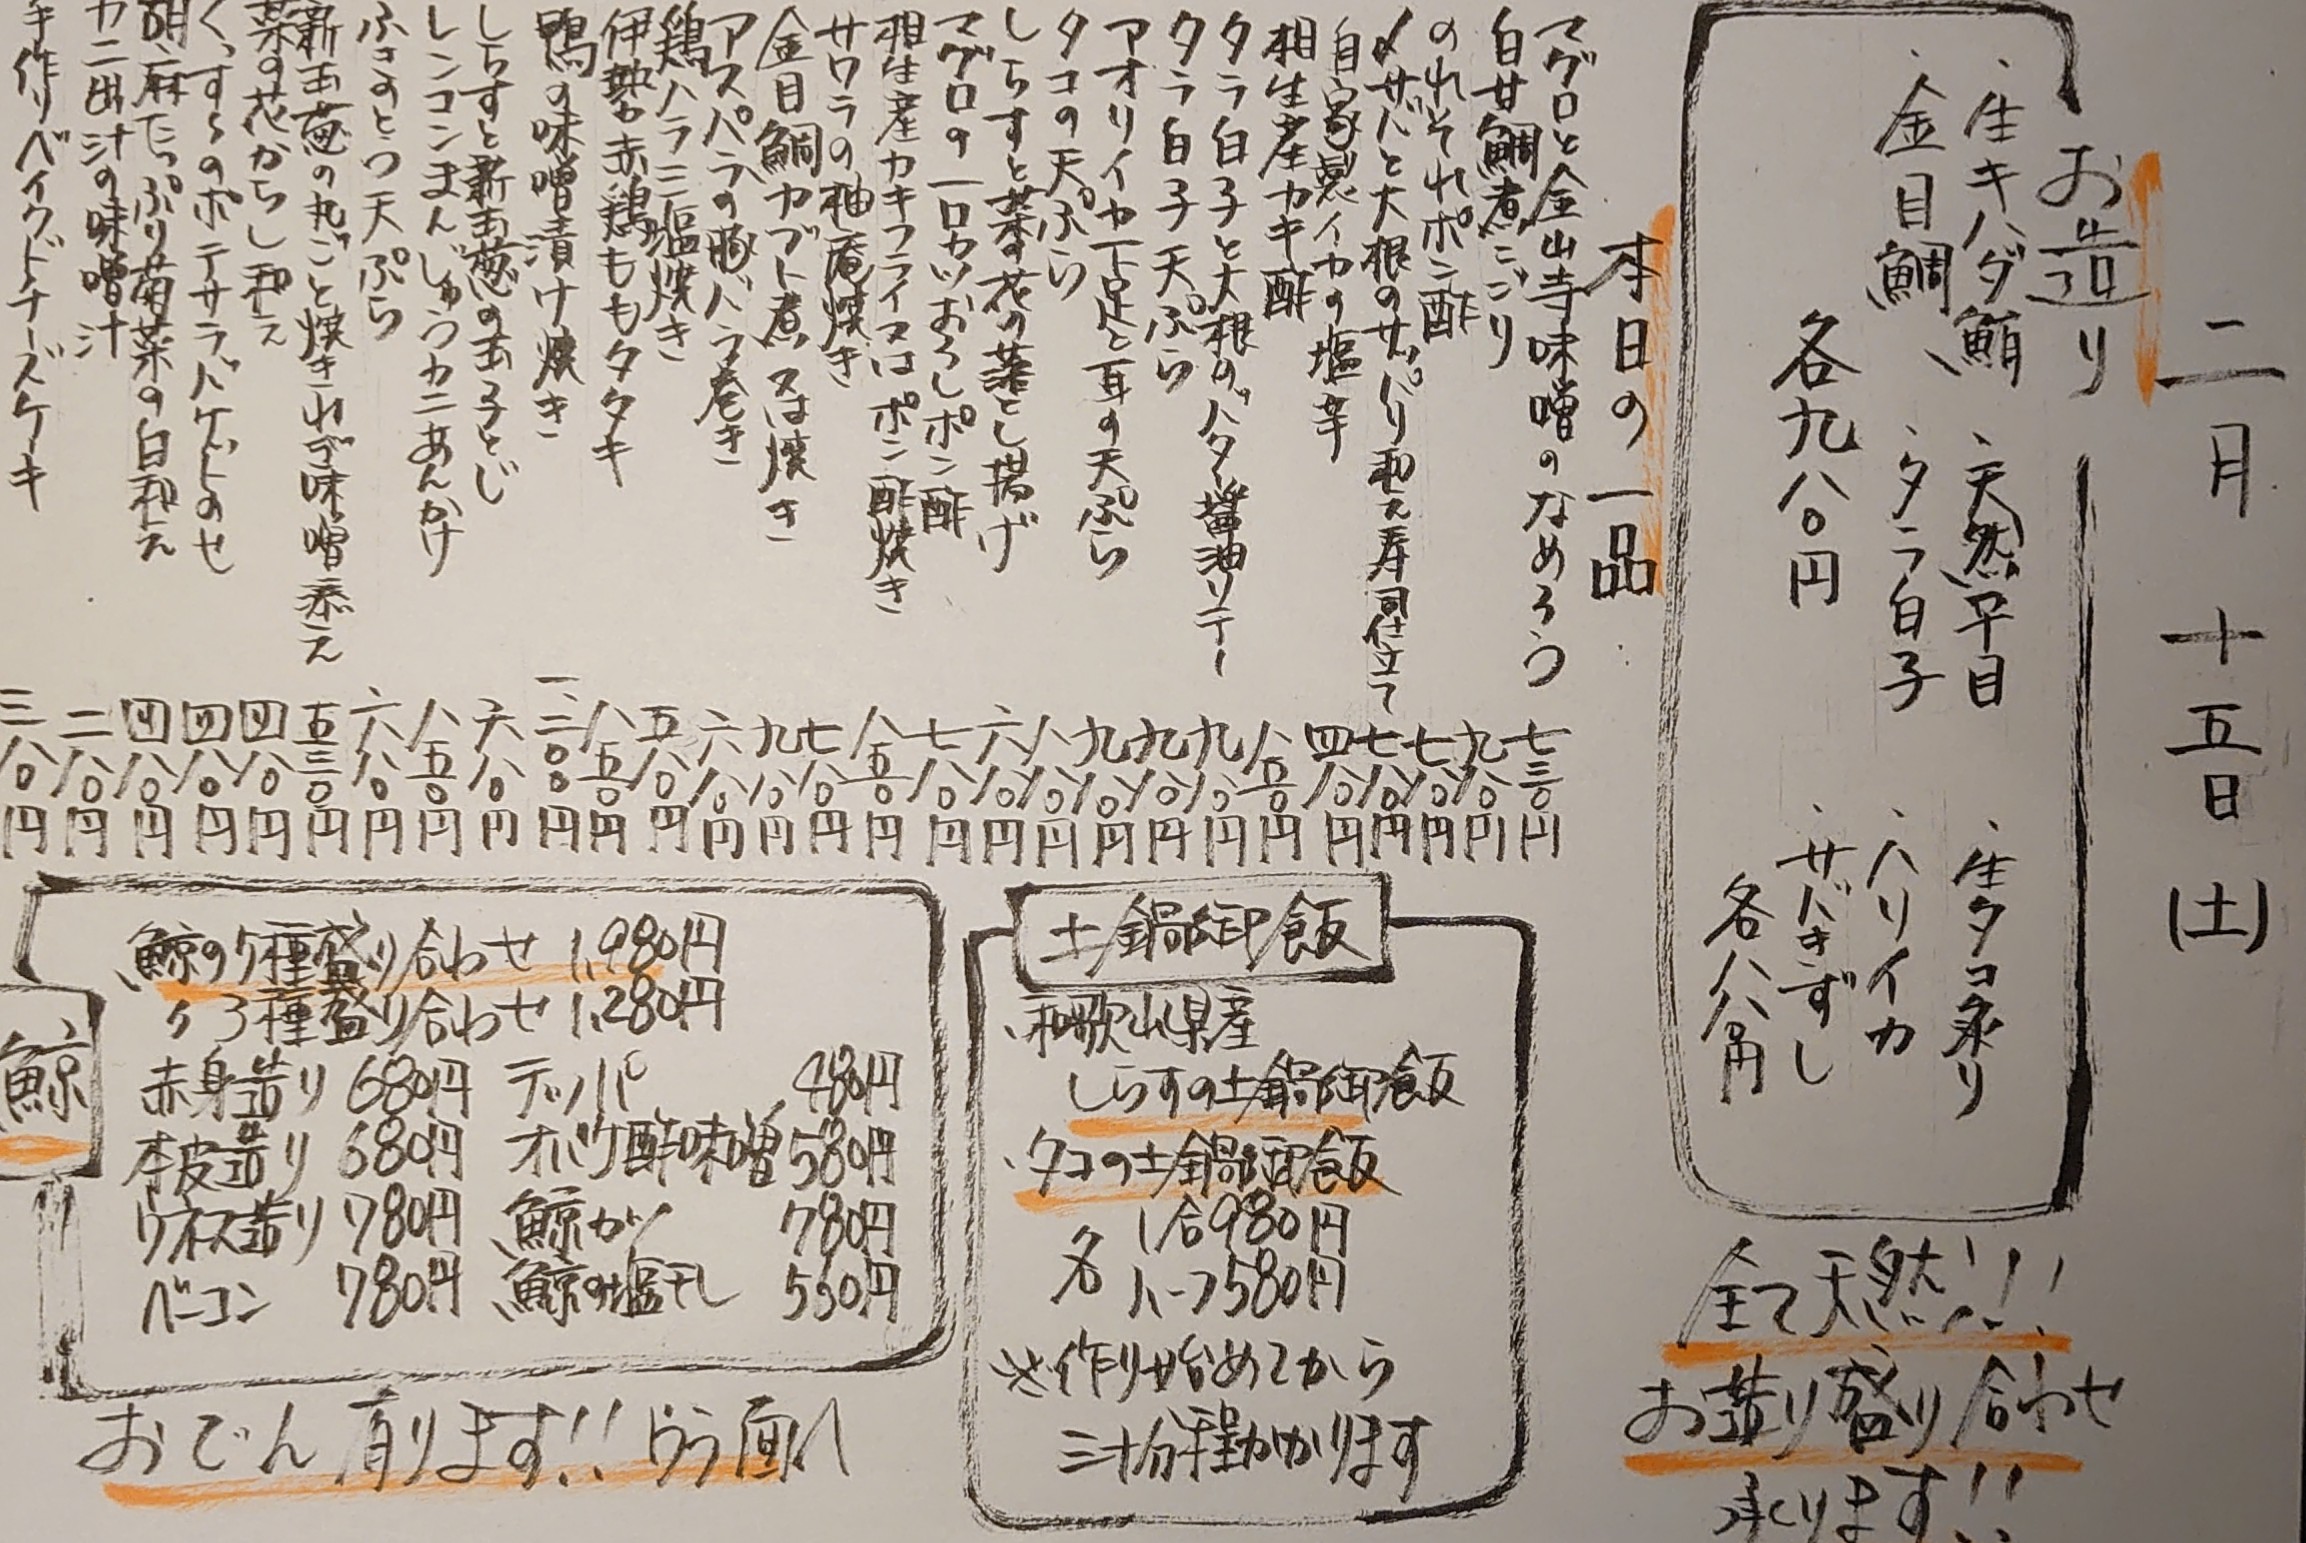 二月十五日(土)
お造り
・生キハダ鮪 ・天然平目 ・生タコ炙り
・金目鯛、・タラ白子 ・ハリイカ
・サバきずし
各九八〇円
各八八〇円
全て天然!!!
お造り盛り合わせ
承ります!!
本日の一品
マグロと金山寺味噌のなめろう 七三〇円
白甘鯛煮こごり 九八〇円
のれそれポン酢 七八〇円
〆サバと大根のサッパリ和え寿司仕立て 七八〇円
自家製イカの塩辛 四八〇円
相生産カキ酢 八五〇円
タラ白子と大根のバター醤油ソテー 九八〇円
タラ白子天ぷら 九八〇円
アオリイカ下足と耳の天ぷら 九八〇円
タコの天ぷら 八八〇円
しらすと菜の花の落とし揚げ 六八〇円
マグロの一口カツおろしポン酢 七八〇円
相生産カキフライ又はポン酢焼き 八五〇円
サワラの柚庵焼き 七八〇円
金目鯛カブト煮又は焼き 九八〇円
アスパラの豚バラ巻き 六八〇円
鶏ハラミ塩焼き 五八〇円
伊勢赤鶏ももタタキ 八五〇円
鴨の味噌漬け焼き 一、二〇〇円
しらすと新玉葱の玉子とじ 六八〇円
レンコンまんじゅうカニあんかけ 八五〇円
ふきのとう天ぷら 六八〇円
新玉葱の丸ごと焼きわさび味噌添え 五三〇円
菜の花からし和え 四八〇円
くっすくのポテサラバケットのせ 四八〇円
胡麻たっぷり菊菜の白和え 四八〇円
カニ出汁の味噌汁 二八〇円
手作りベイクドチーズケーキ 三八〇円
土鍋御飯
・和歌山県産
しらすの土鍋御飯
・タコの土鍋御飯
各 1合980円
ハーフ580円
※作り始めてから
三十分程かかります
鯨
鯨の5種盛り合わせ 1,980円
〃 3種盛り合わせ 1,280円
赤身造り 680円 テッパ 480円
本皮造り 680円 オバケ酢味噌 580円
ウネス造り 780円 鯨カツ 780円
ベーコン 780円 鯨の塩干し 550円
おでん有ります!!ウラ面へ